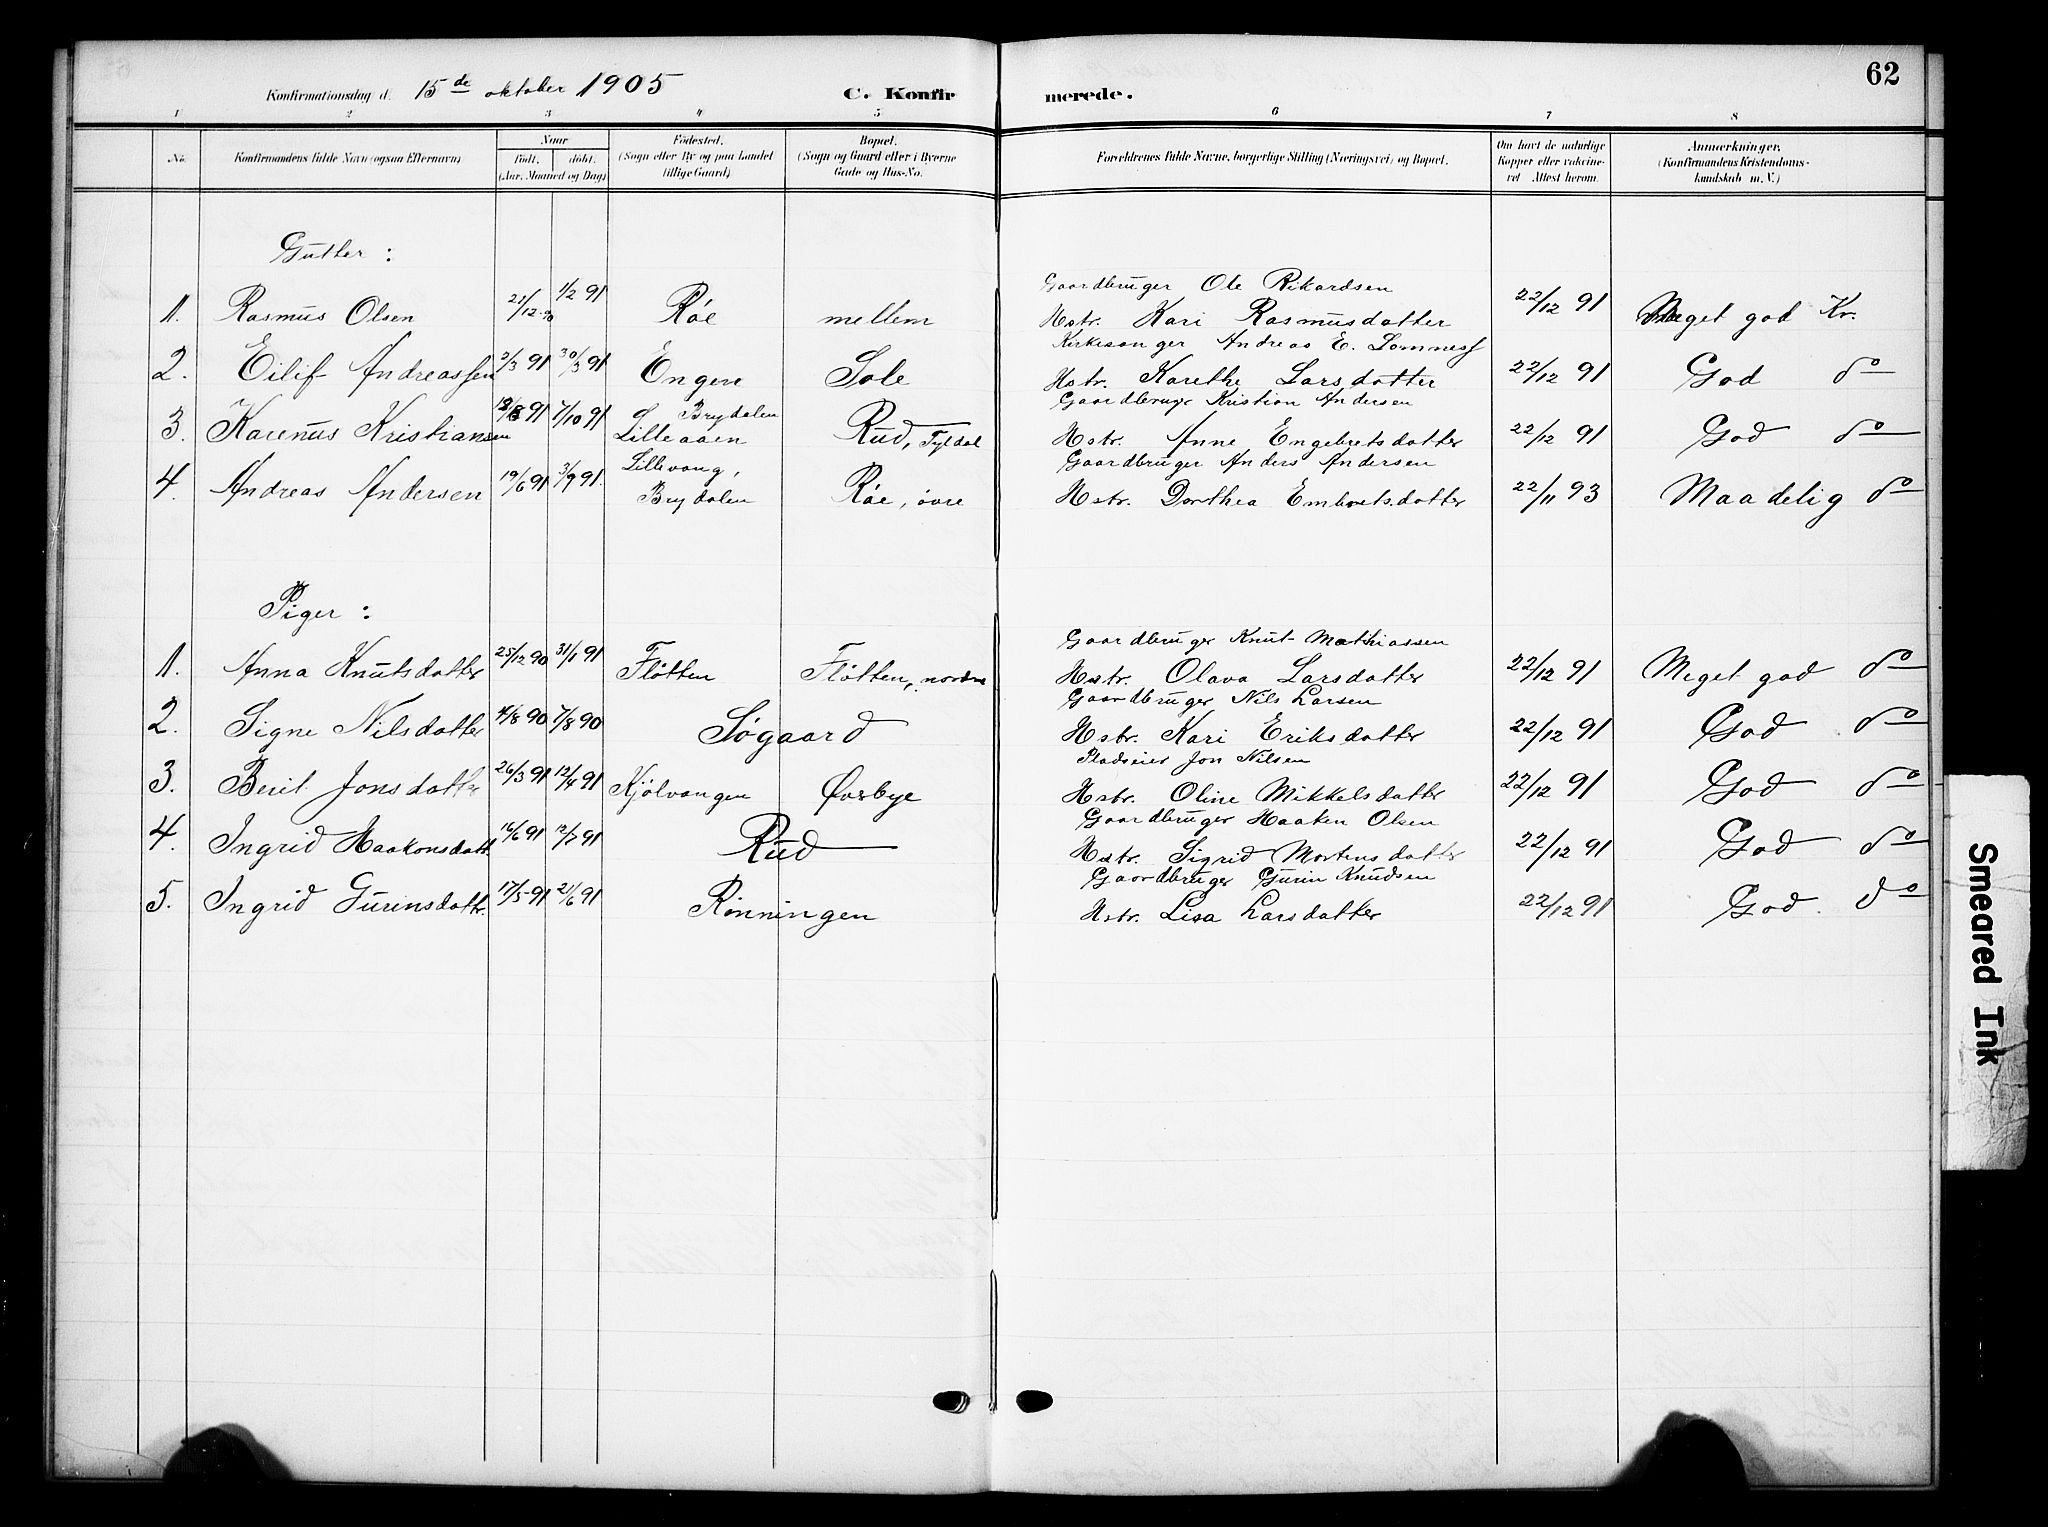 62
Konfirmationsdag d. 15de oktober 1905 C. Konfir merede.
1 2 3 4 5 6 7 8
No.
Konfirmandens fulde Navn (ogsaa Efternavn)
Naar
født. døbt.
(Aar, Maaned og Dag)
Fødested.
(Sogn eller By og paa Landet
tillige Gaard)
Bopæl.
(Sogn og Gaard eller i Byerne
Gade og Hus-No.
Forældrenes fulde Navne, borgerlige Stilling (Næringsvei) og Bopæl.
Om havt de naturlige
Kopper eller vakcine-
ret Attest herom.
Anmærkninger.
(Konfirmandens Kristendoms-
kundskab m. V.)
Gutter :
Gaardbruger Ole Rikardsen
1. Rasmus Olsen 21/12 90 1/2 91 Røe mellem Hstr. Kari Rasmusdatter 22/12 91 Meget god Kr.
Kirkesanger Andreas E. Lomness
2. Eilif Andreassen 2/3 91 30/3 91 Engen Sole Hstr. Karethe Larsdatter 22/12 91 God do
Brydalen Gaardbruger Kristian Andersen
3. Karenus Kristiansen 18/8 91 7/10 91 Lilleaaen Rud, Tyldal Hstr. Anne Engebretsdatter 22/12 91 God do
Lillevang, Gaardbruger Anders Andersen
4. Andreas Andersen 19/6 91 3/9 91. Brydalen Røe, øvre Hstr. Dorthea Embretsdatter 22/11 93 Maadelig do
Piger :
Gaardbruger Knut Mathiassen
1. Anna Knutsdatter 25/12 90 31/1 91 Fløtten Fløtten, nordre Hstr. Olava Larsdatter 22/12 91 Meget god do
Gaardbruger Nils Larsen
2. Signe Nilsdatter 4/8 90 7/8 90 Søgaard Hstr. Kari Eriksdatter 22/12 91 God do
Pladseier Jon Nilsen
3. Berit Jonsdatter 26/3 91 12/4 91 Kjølvangen Øverbye Hstr. Oline Mikkelsdatter 22/12 91 God do
Gaardbruger Haaken Olsen
4. Ingrid Haakonsdatt. 16/6 91 12/7 91 Rud Hstr. Sigrid Mortensdatter 22/12 91 God do
Gaardbruger Gurin Knudsen
5. Ingrid Gurinsdattr. 17/5 91 21/6 91 Rønningen Hstr. Lisa Larsdatter 22/12 91 God. do
Smeared Ink